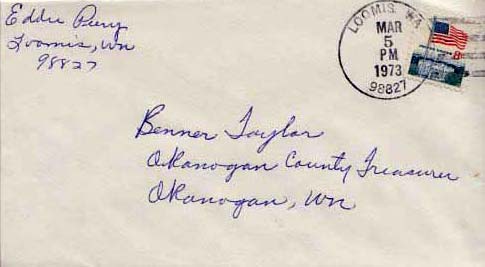 Eddie Perry
Loomis, Wn
98827
LOOMIS, WA
MAR
5
PM
1973
98827
8c
Benner Taylor
Okanogan County Treasurer
Okanogan, Wn